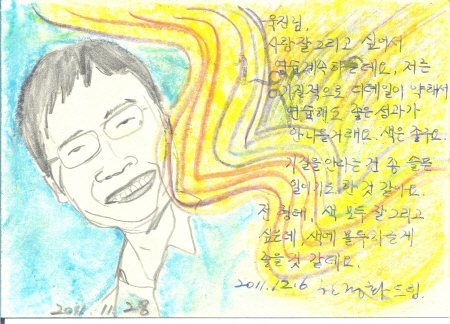 욱진님,
사람 잘 그리고 싶어서
연습 계속 하는데요, 저는
기질적으로 디테일이 약해서
연습해도 좋은 성과가
안 나올거래요. 색은 좋구요.
기질을 안다는 건 좀 슬픈
일이기도 한 것 같아요.
전 형태, 색 모두 잘 그리고
싶은데, 색에 몰두하는게
좋을 것 같데요.
2011.12.6 드림.
2011.11.28